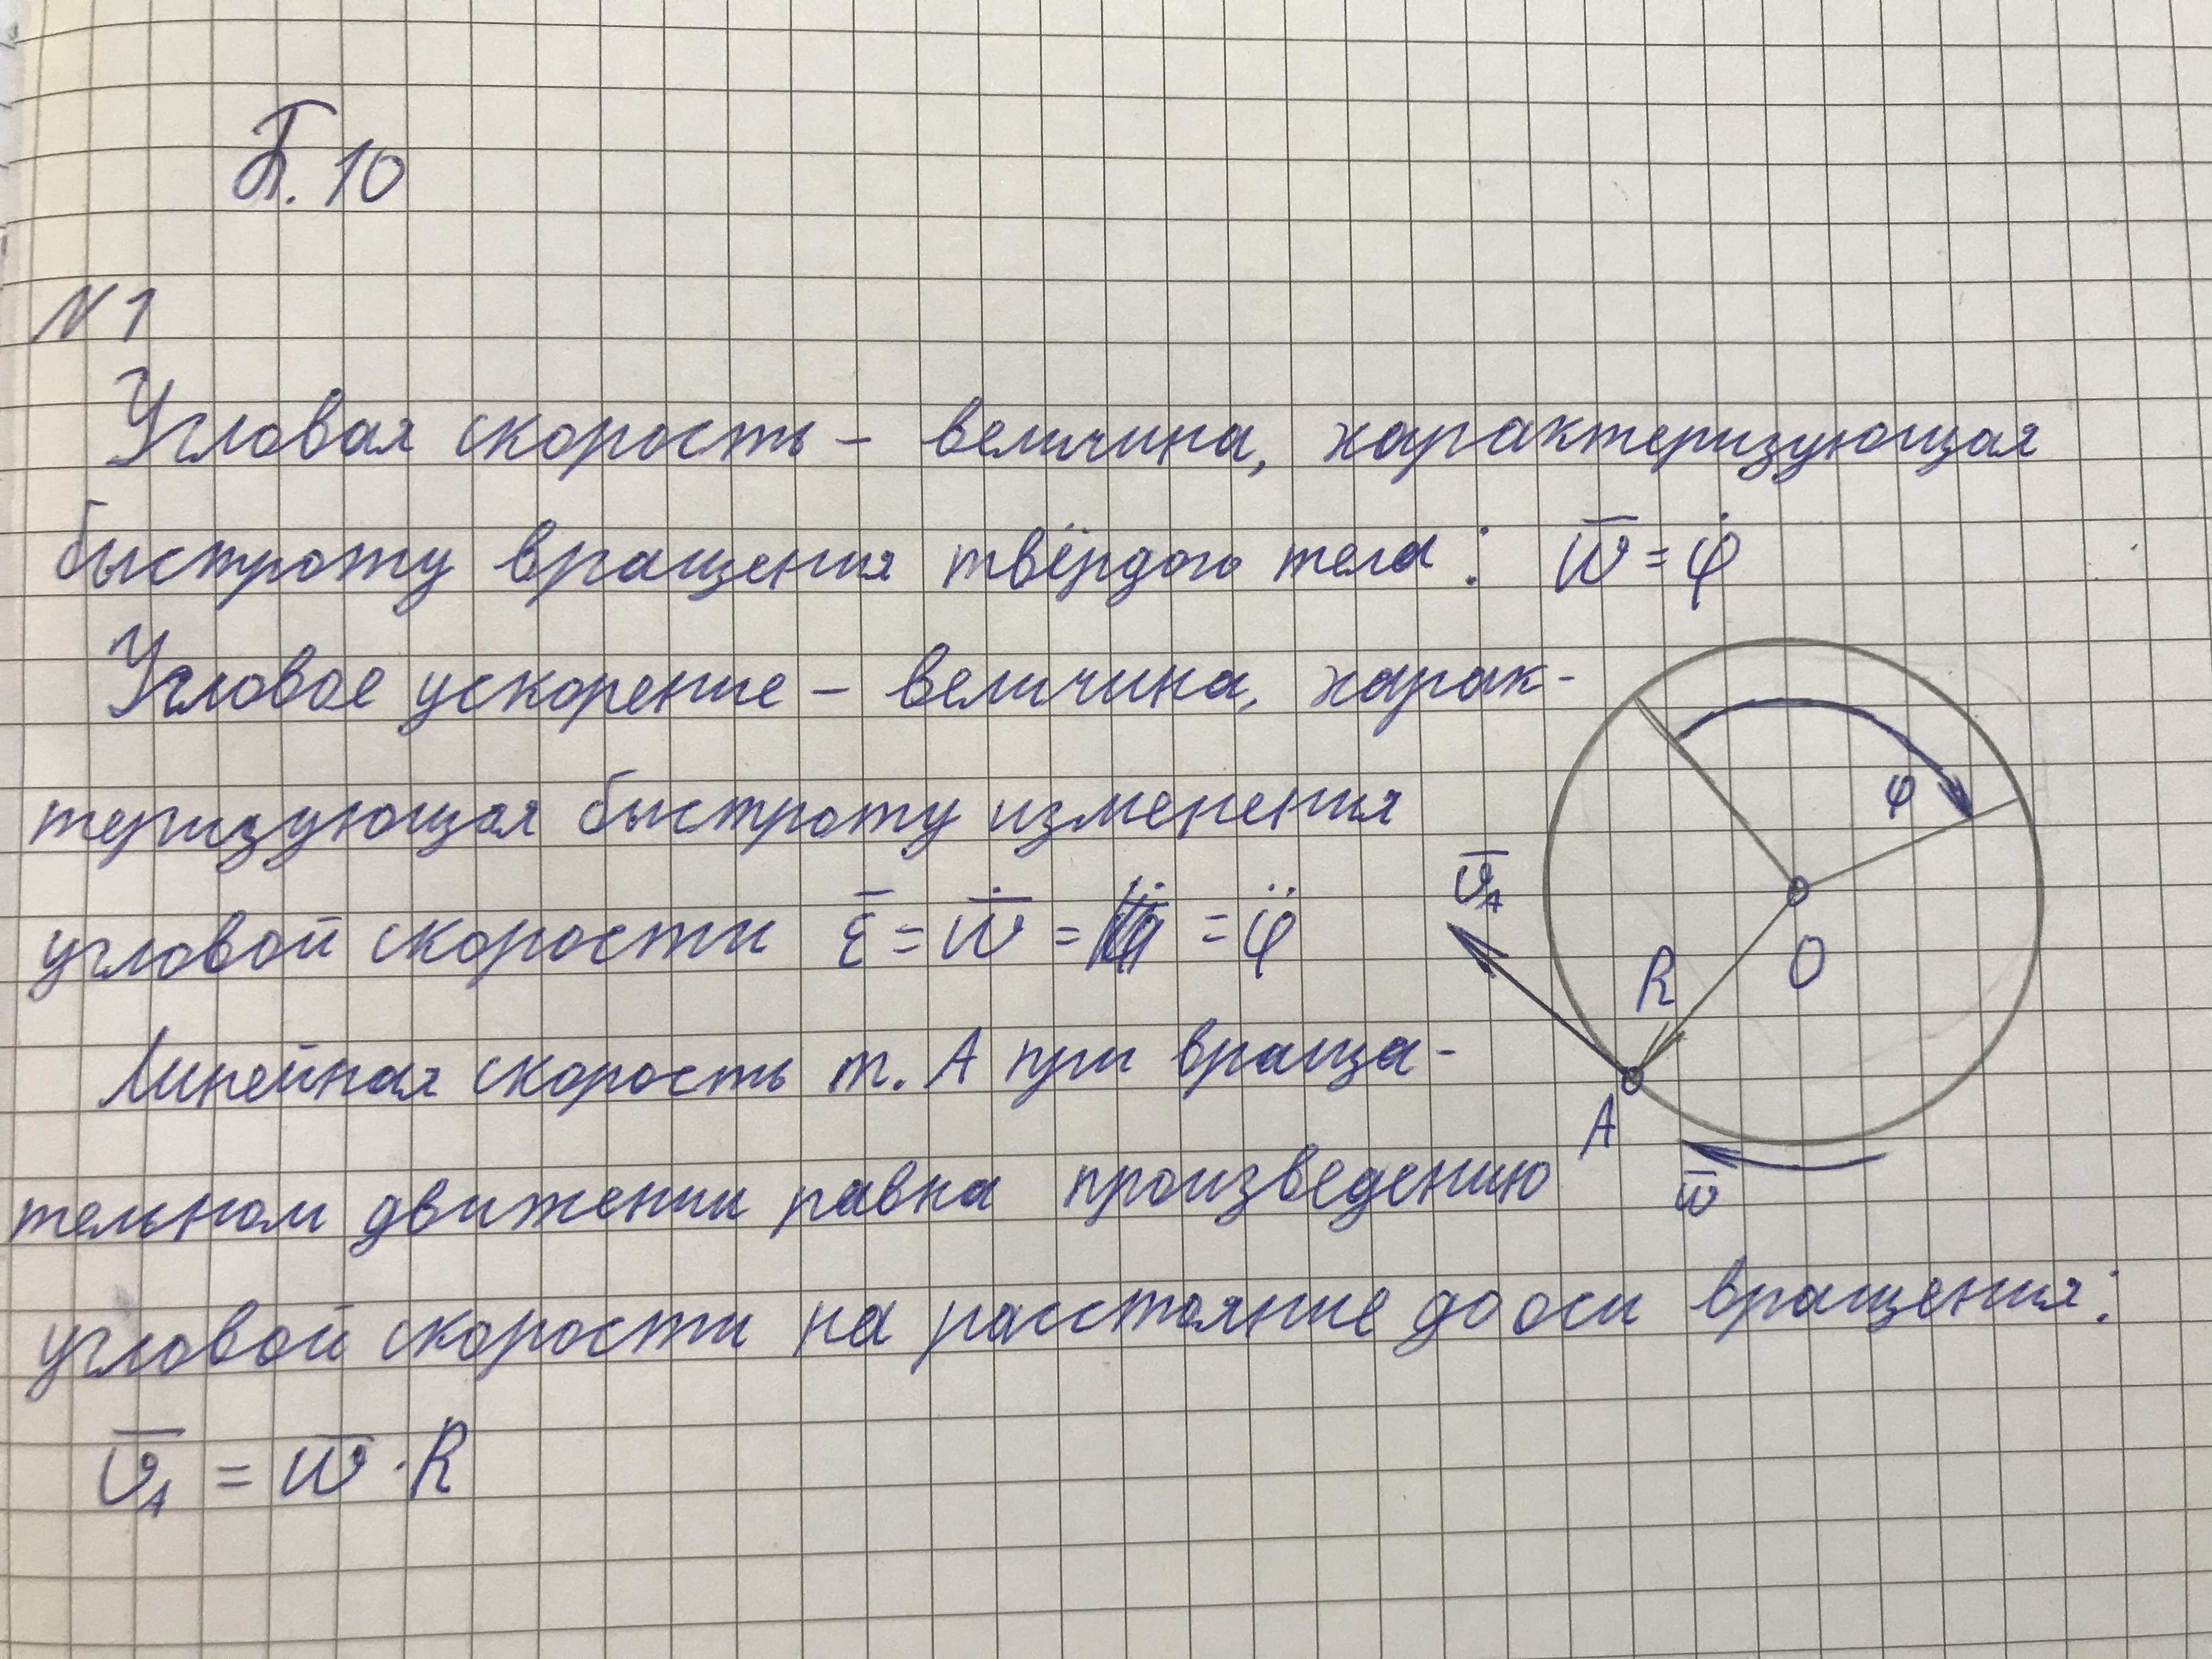 Б. 10
№1
Угловая скорость – величина, характеризующая
быстроту вращения твёрдого тела: ω̅ = φ̇
Угловое ускорение – величина, харак-
теризующая быстроту изменения
угловой скорости ε̅ = ω̅̇ = = φ̈
Линейная скорость т. А при враща-
тельном движении равна произведению
угловой скорости на расстояние до оси вращения:
υ̅_A = ω̅ · R
φ
υ̅_A
R
O
A
ω̅